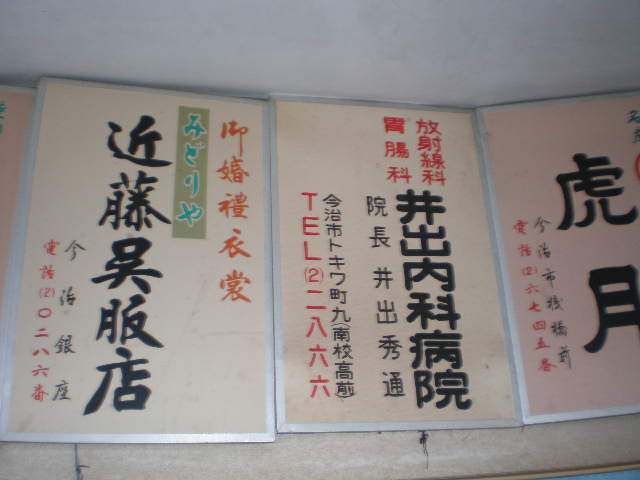 御婚禮衣裳
みどりや
近藤呉服店
今治銀座
電話(2)〇二八六番
放射線科
胃腸科
井出内科病院
院長 井出秀通
今治市トキワ町九(南校高前)
TEL(2)二八六六
虎月
今治市桟橋前
電話(2)六七四五番